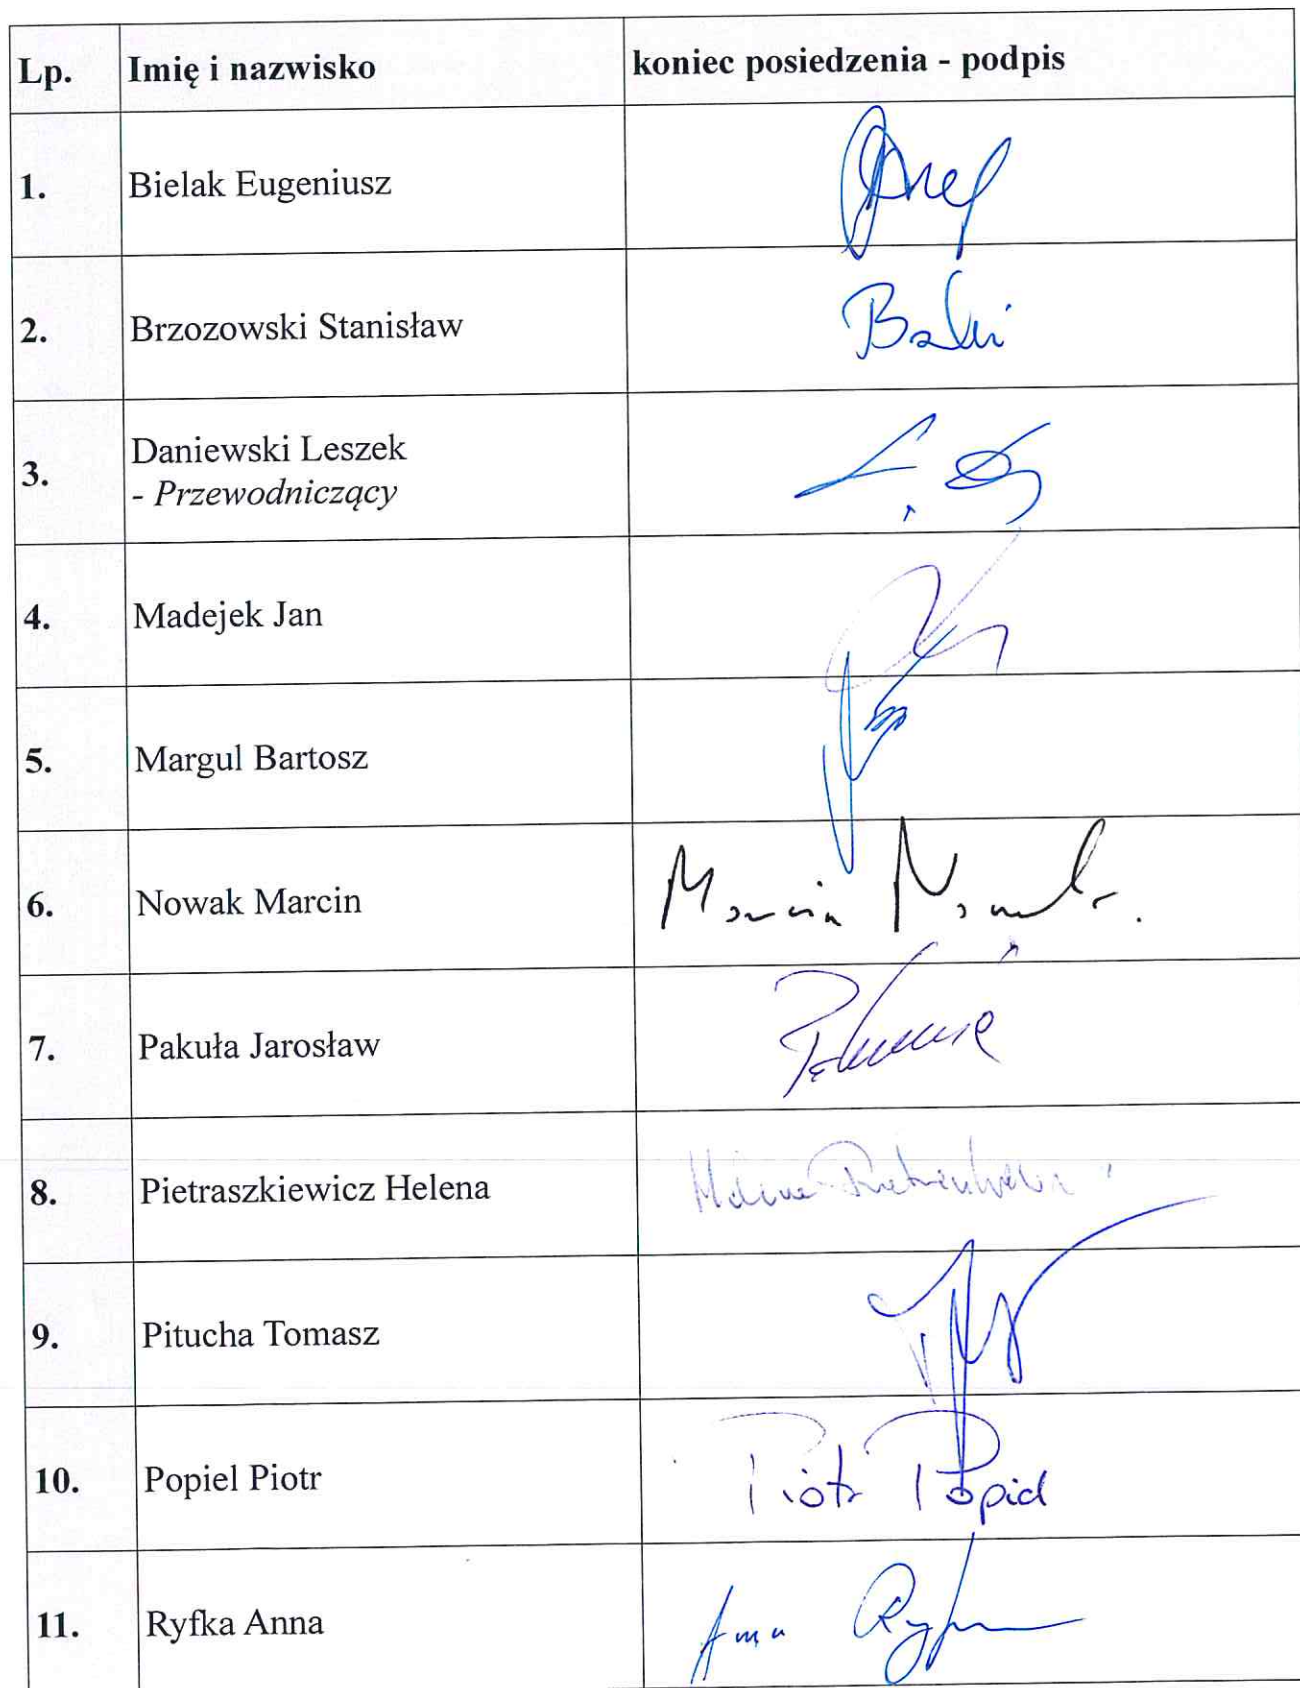 Lp. Imię i nazwisko koniec posiedzenia - podpis
1. Bielak Eugeniusz
2. Brzozowski Stanisław
3. Daniewski Leszek
- Przewodniczący
4. Madejek Jan
5. Margul Bartosz
6. Nowak Marcin Marcin Nowak
7. Pakuła Jarosław
8. Pietraszkiewicz Helena
9. Pitucha Tomasz
10. Popiel Piotr Piotr Popiel
11. Ryfka Anna Anna